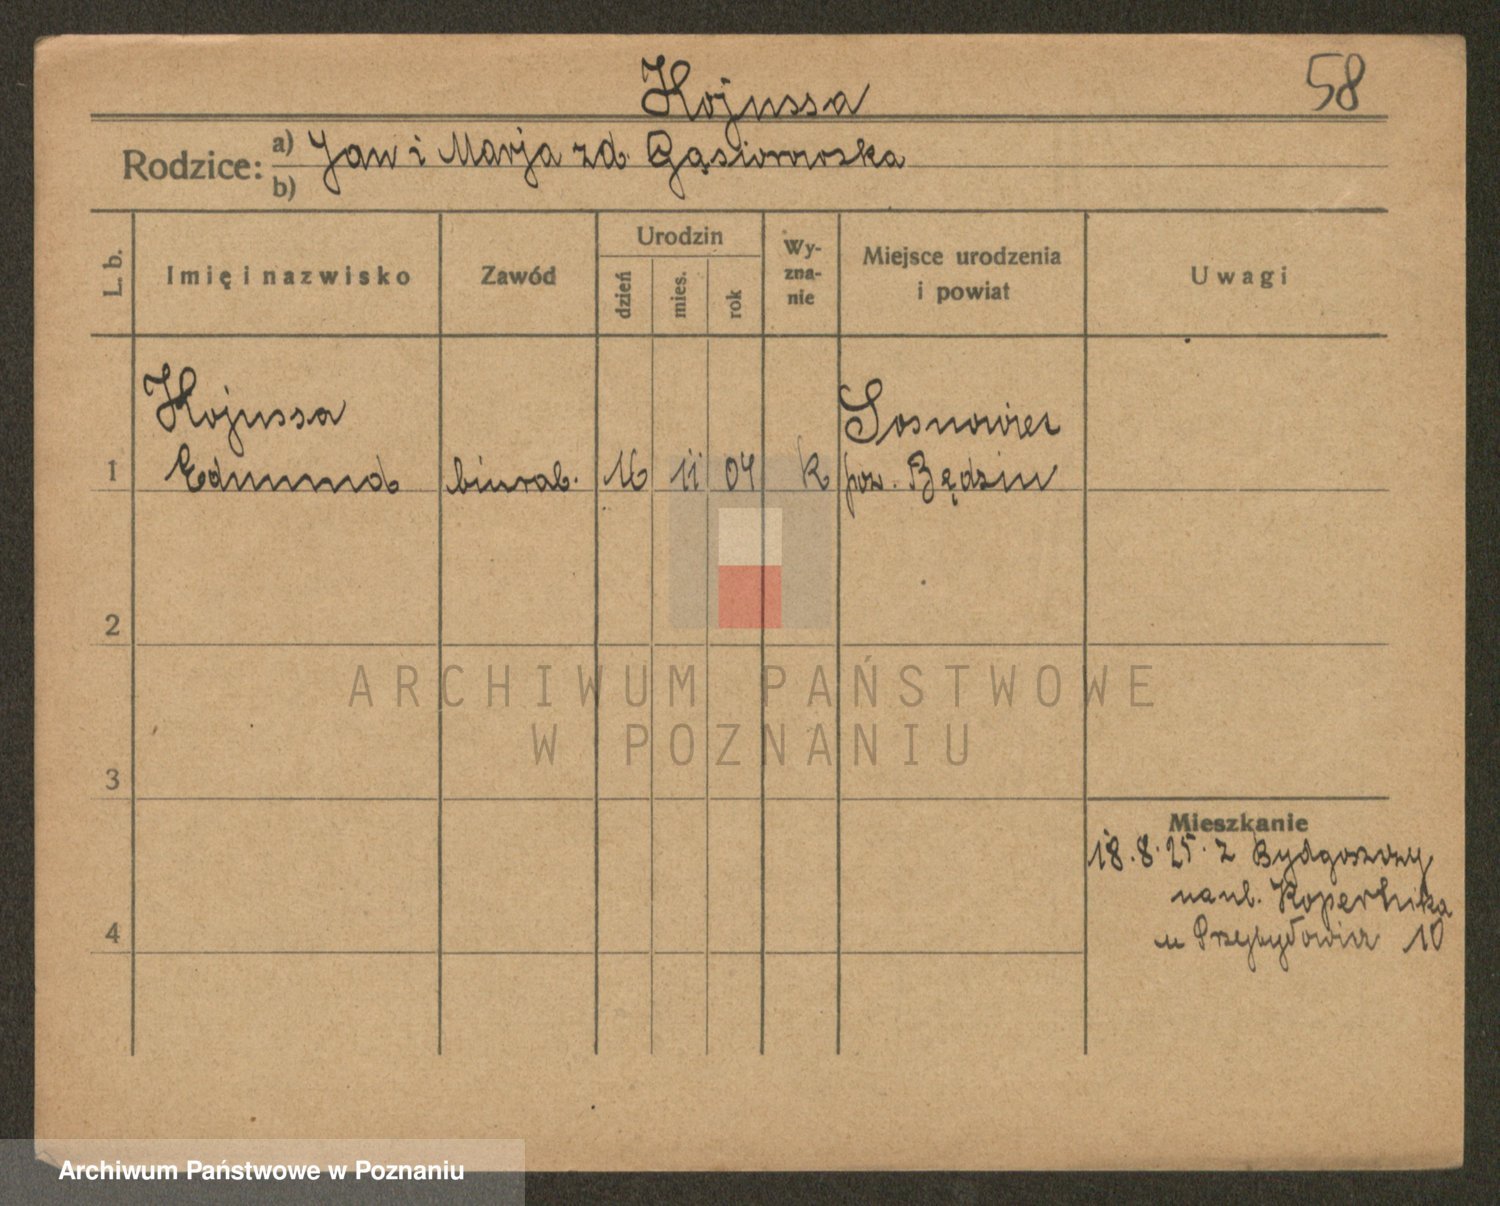 58
Kojussa
Rodzice: a) Jan i Marja zd. Gąsiorowska
b)
L. b. Imię i nazwisko Zawód Urodzin dzień mies. rok Wy-zna-nie Miejsce urodzenia i powiat Uwagi
Kojussa Sosnowiec
1 Edmund biural. 16 11 04 k pow. Będzin
2
ARCHIWUM PAŃSTWOWE
W POZNANIU
3
Mieszkanie
18.8.25. z Bydgoszczy
na ul. Kopernika
4
u 10
Archiwum Państwowe w Poznaniu